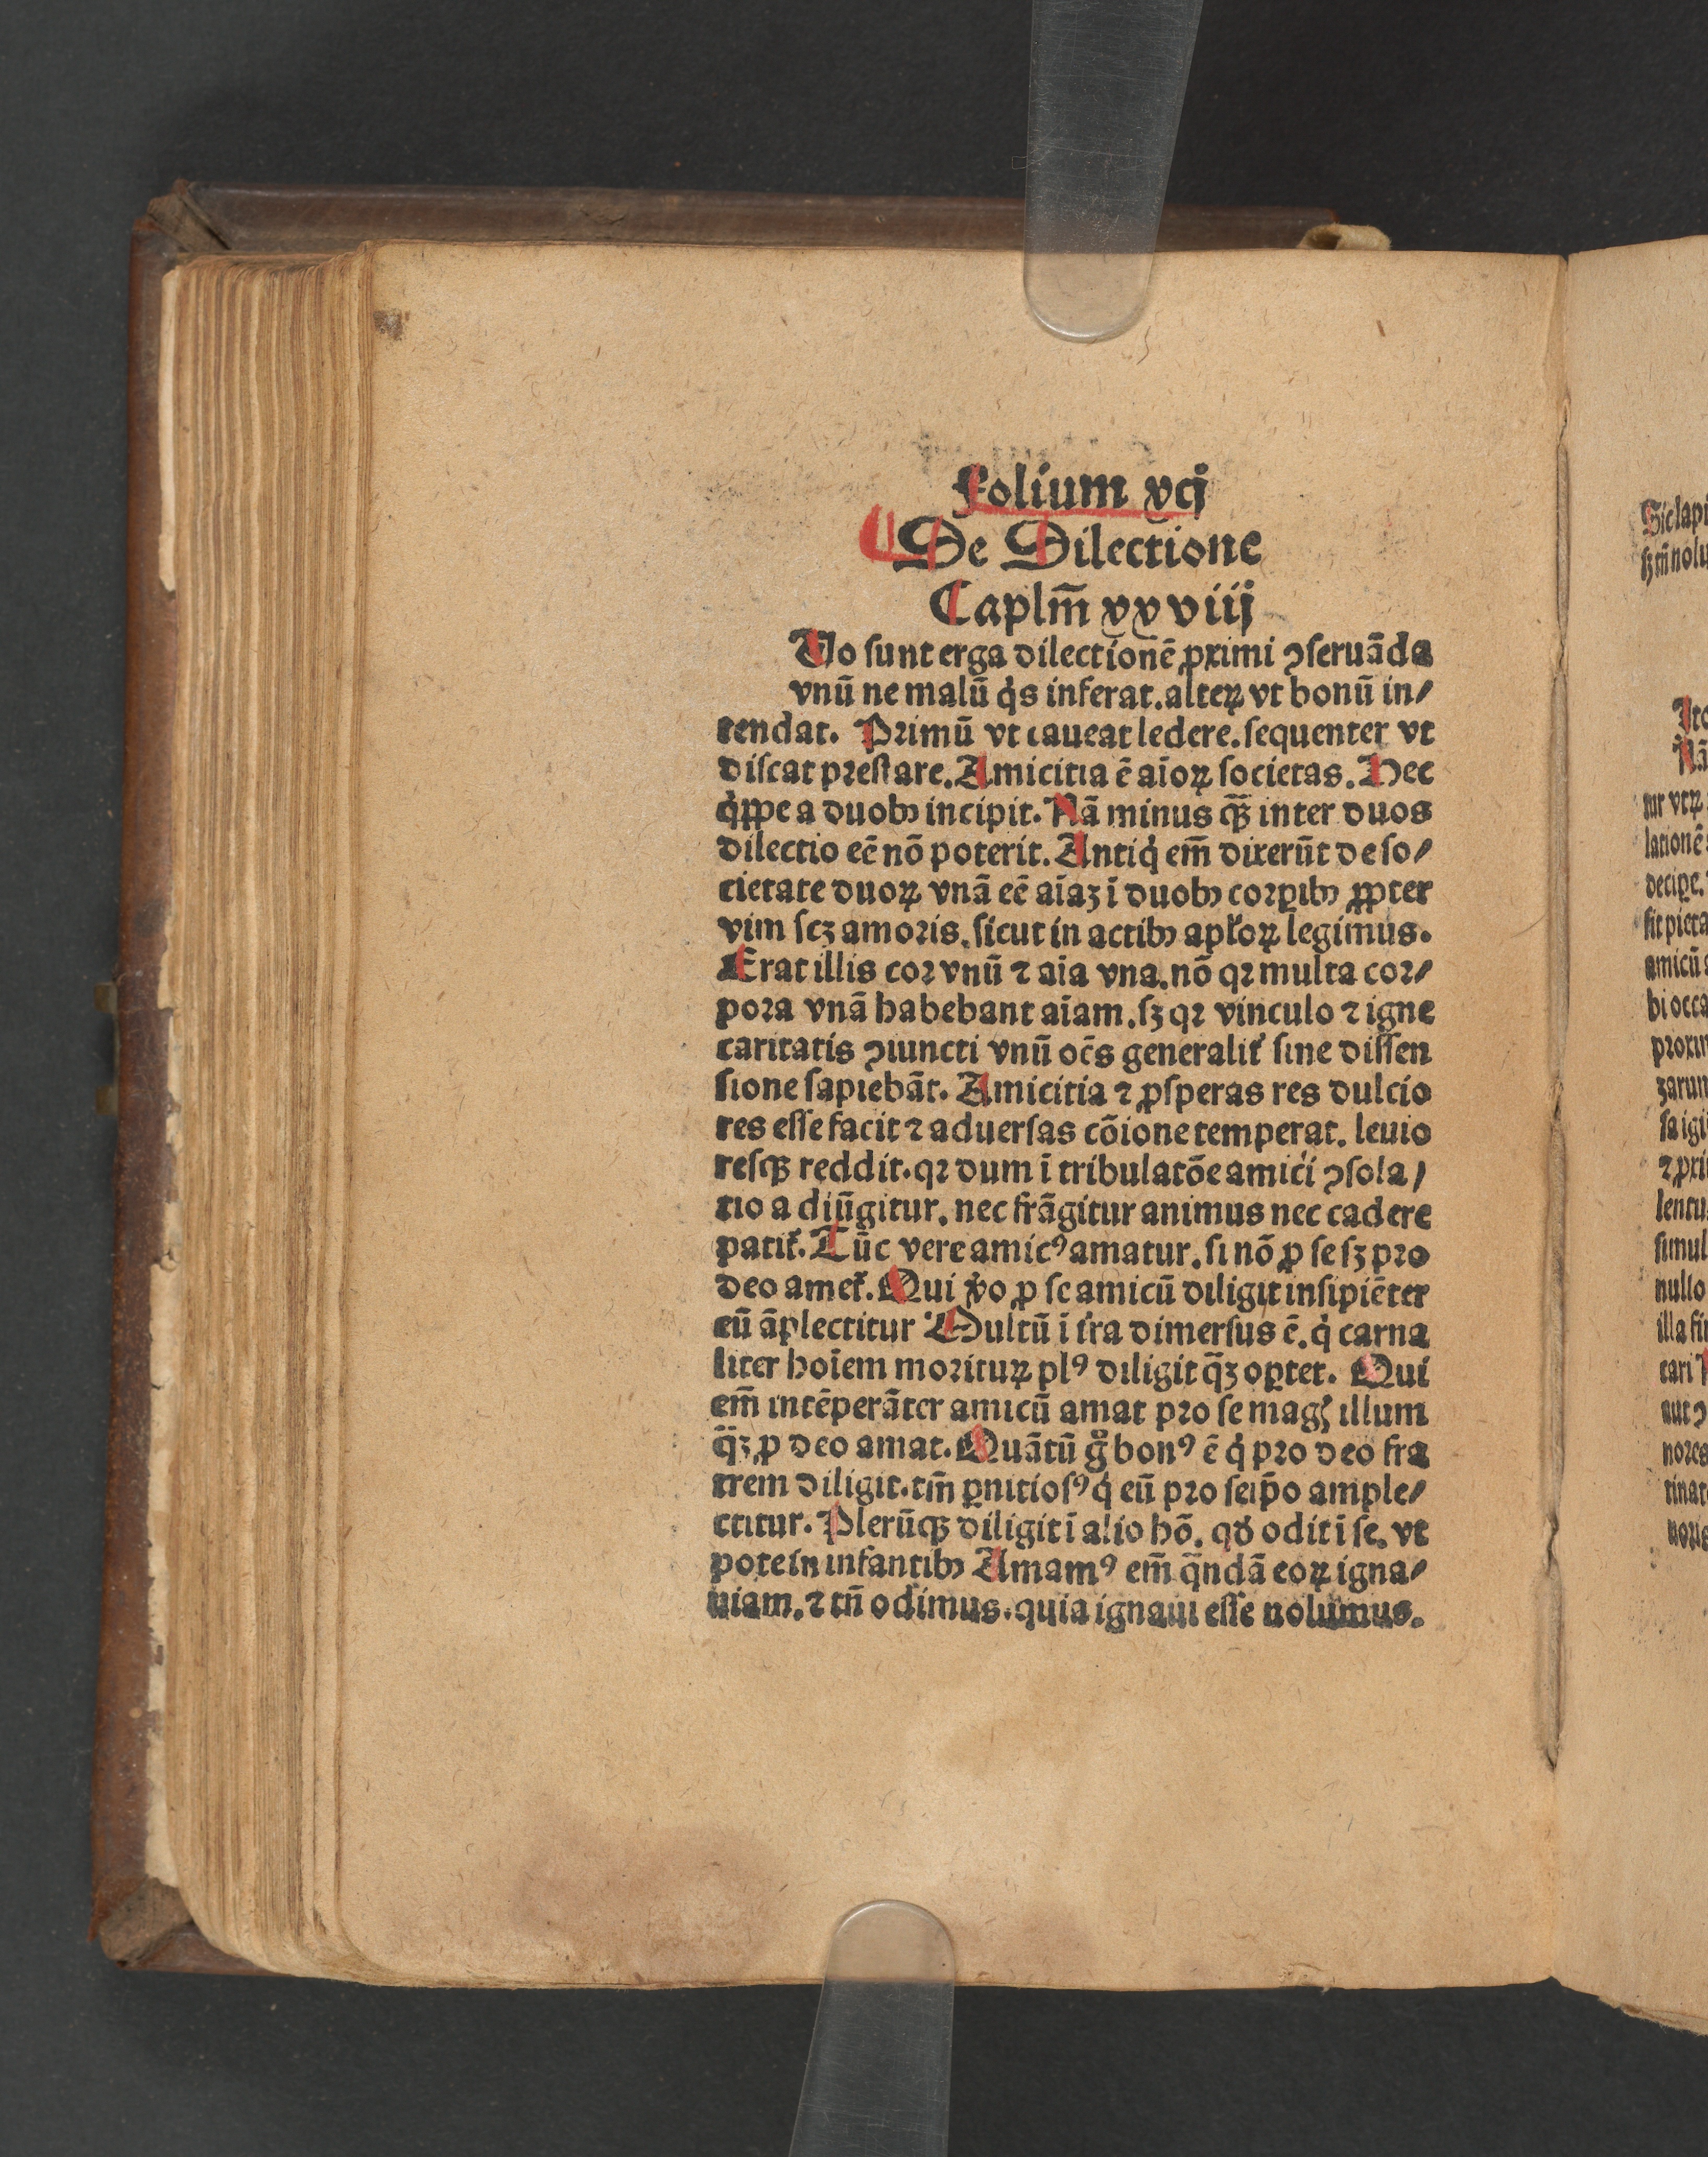 Folium xcj
De Dilectione
Caplm̄ xxviij
Uo ſunt erga dilectionē ꝓximi ꝯſeruāda
vnū ne malū q̇s inferat. alteꝝ vt bonū in⸗
tendat. Primū vt caueat ledere. ſequenter vt
diſcat preſtare. Amicitia ē aīoꝝ ſocietas. Hec
q̇ppe a duobꝰ incipit. Nā minus qꝫ̄ inter duos
dilectio eē nō poterit. Antiq̇ em̄ dixerūt de ſo⸗
cietate duoꝝ vnā eē aīaꝫ ī duobꝰ corꝑibꝰ ꝓpter
vim ſcꝫ amoris. ſicut in actibꝰ apl̓oꝝ legimus.
Erat illis cor vnū ⁊ aīa vna. nō qꝛ multa cor⸗
pora vnā habebant aīam. ſꝫ qꝛ vinculo ⁊ igne
caritatis ꝯiuncti vnū oēs generalit̓ ſine diſſen
ſione ſapiebāt. Amicitia ⁊ ꝓſperas res dulcio
res eſſe facit ⁊ aduerſas cōione temperat. leuio
reſqꝫ reddit. qꝛ dum ī tribulatōe amici ꝯſola⸗
tio adiūgitur. nec frāgitur animus nec cadere
patit̓. Tūc vere amicꝰ amatur. ſi nō ꝓ ſe ſꝫ pro
deo amet̓. Qui v̓o ꝓ ſe amicū diligit inſipiēter
eū āplectitur Multū ī t̓ra dimerſus ē. q̇ carna
liter hoīem morituꝝ plꝰ diligit q̄ꝫ oꝑtet. Qui
em̄ intēperāter amicū amat pro ſe magꝭ illum
q̄ꝫ ꝓ deo amat. Quātū g̊ bonꝰ ē q̇ pro deo fra
trem diligit. tm̄ ꝑnitioſꝰ q̇ eū pro ſeip̄o ample⸗
ctitur. Plerūqꝫ diligit ī alio hō. qd̓ odit ī ſe. vt
pote in infantibꝰ Amamꝰ em̄ q̄ndā eoꝝ igna⸗
uiam. ⁊ tn̄ odimus. quia ignaui eſſe nolumus.